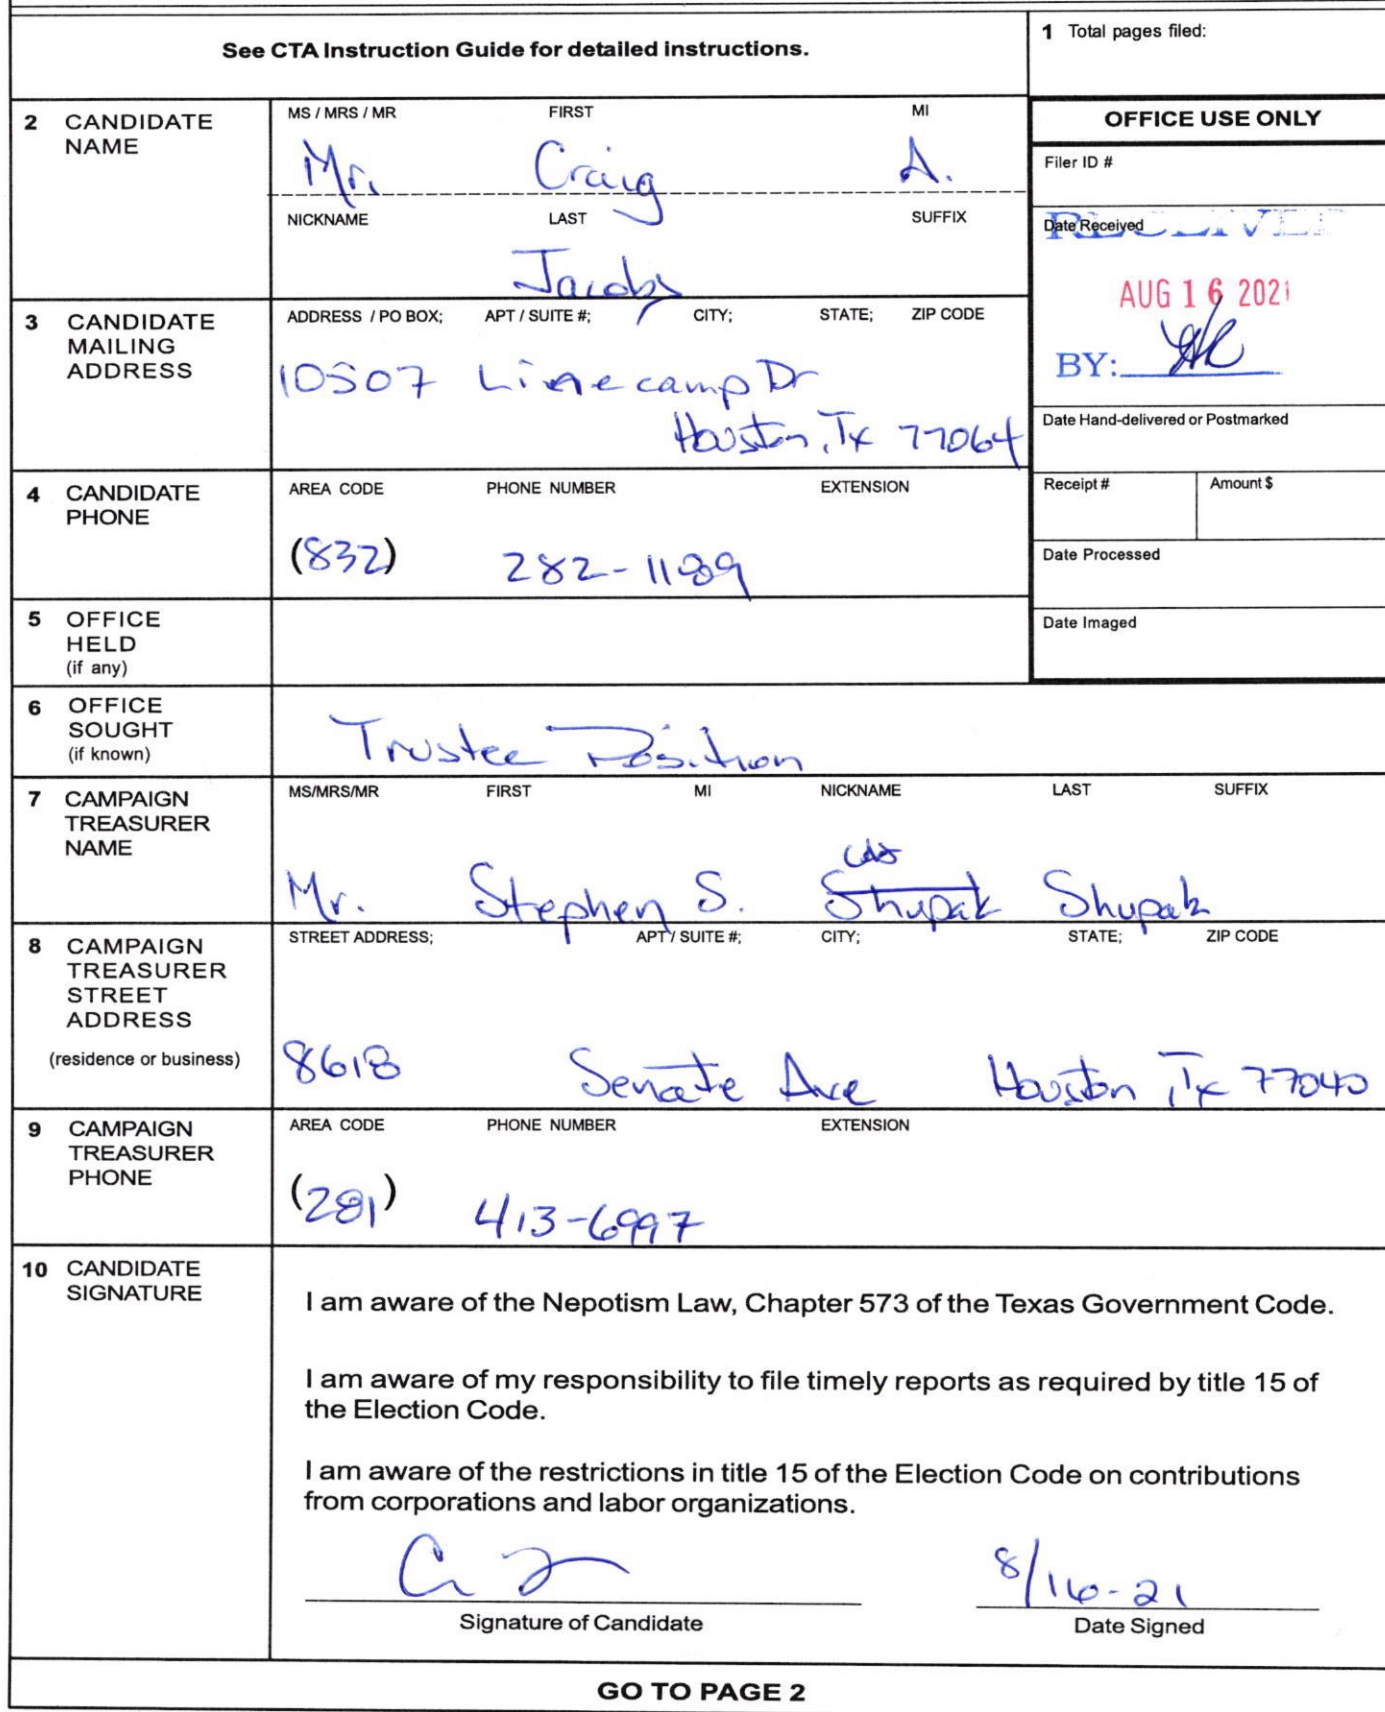 See CTA Instruction Guide for detailed instructions.
1 Total pages filed:
2 CANDIDATE NAME
MS / MRS / MR FIRST MI
Mr. Craig A.
NICKNAME LAST SUFFIX
Jacoby
OFFICE USE ONLY
Filer ID #
Date Received
RECEIVED
AUG 16 2021
BY:
Date Hand-delivered or Postmarked
Receipt # Amount $
Date Processed
Date Imaged
3 CANDIDATE MAILING ADDRESS
ADDRESS / PO BOX; APT / SUITE #; CITY; STATE; ZIP CODE
10507 Dr
Houston, Tx 77064
4 CANDIDATE PHONE
AREA CODE PHONE NUMBER EXTENSION
(832) 282-1189
5 OFFICE HELD (if any)
6 OFFICE SOUGHT (if known)
Trustee Position
7 CAMPAIGN TREASURER NAME
MS/MRS/MR FIRST MI NICKNAME LAST SUFFIX
Mr. Stephen S. Shupak Shupak
8 CAMPAIGN TREASURER STREET ADDRESS
(residence or business)
STREET ADDRESS; APT / SUITE #; CITY; STATE; ZIP CODE
8618 Senate Ave Houston, Tx 77040
9 CAMPAIGN TREASURER PHONE
AREA CODE PHONE NUMBER EXTENSION
(281) 413-6997
10 CANDIDATE SIGNATURE
I am aware of the Nepotism Law, Chapter 573 of the Texas Government Code.
I am aware of my responsibility to file timely reports as required by title 15 of
the Election Code.
I am aware of the restrictions in title 15 of the Election Code on contributions
from corporations and labor organizations.
8/16-21
Signature of Candidate Date Signed
GO TO PAGE 2